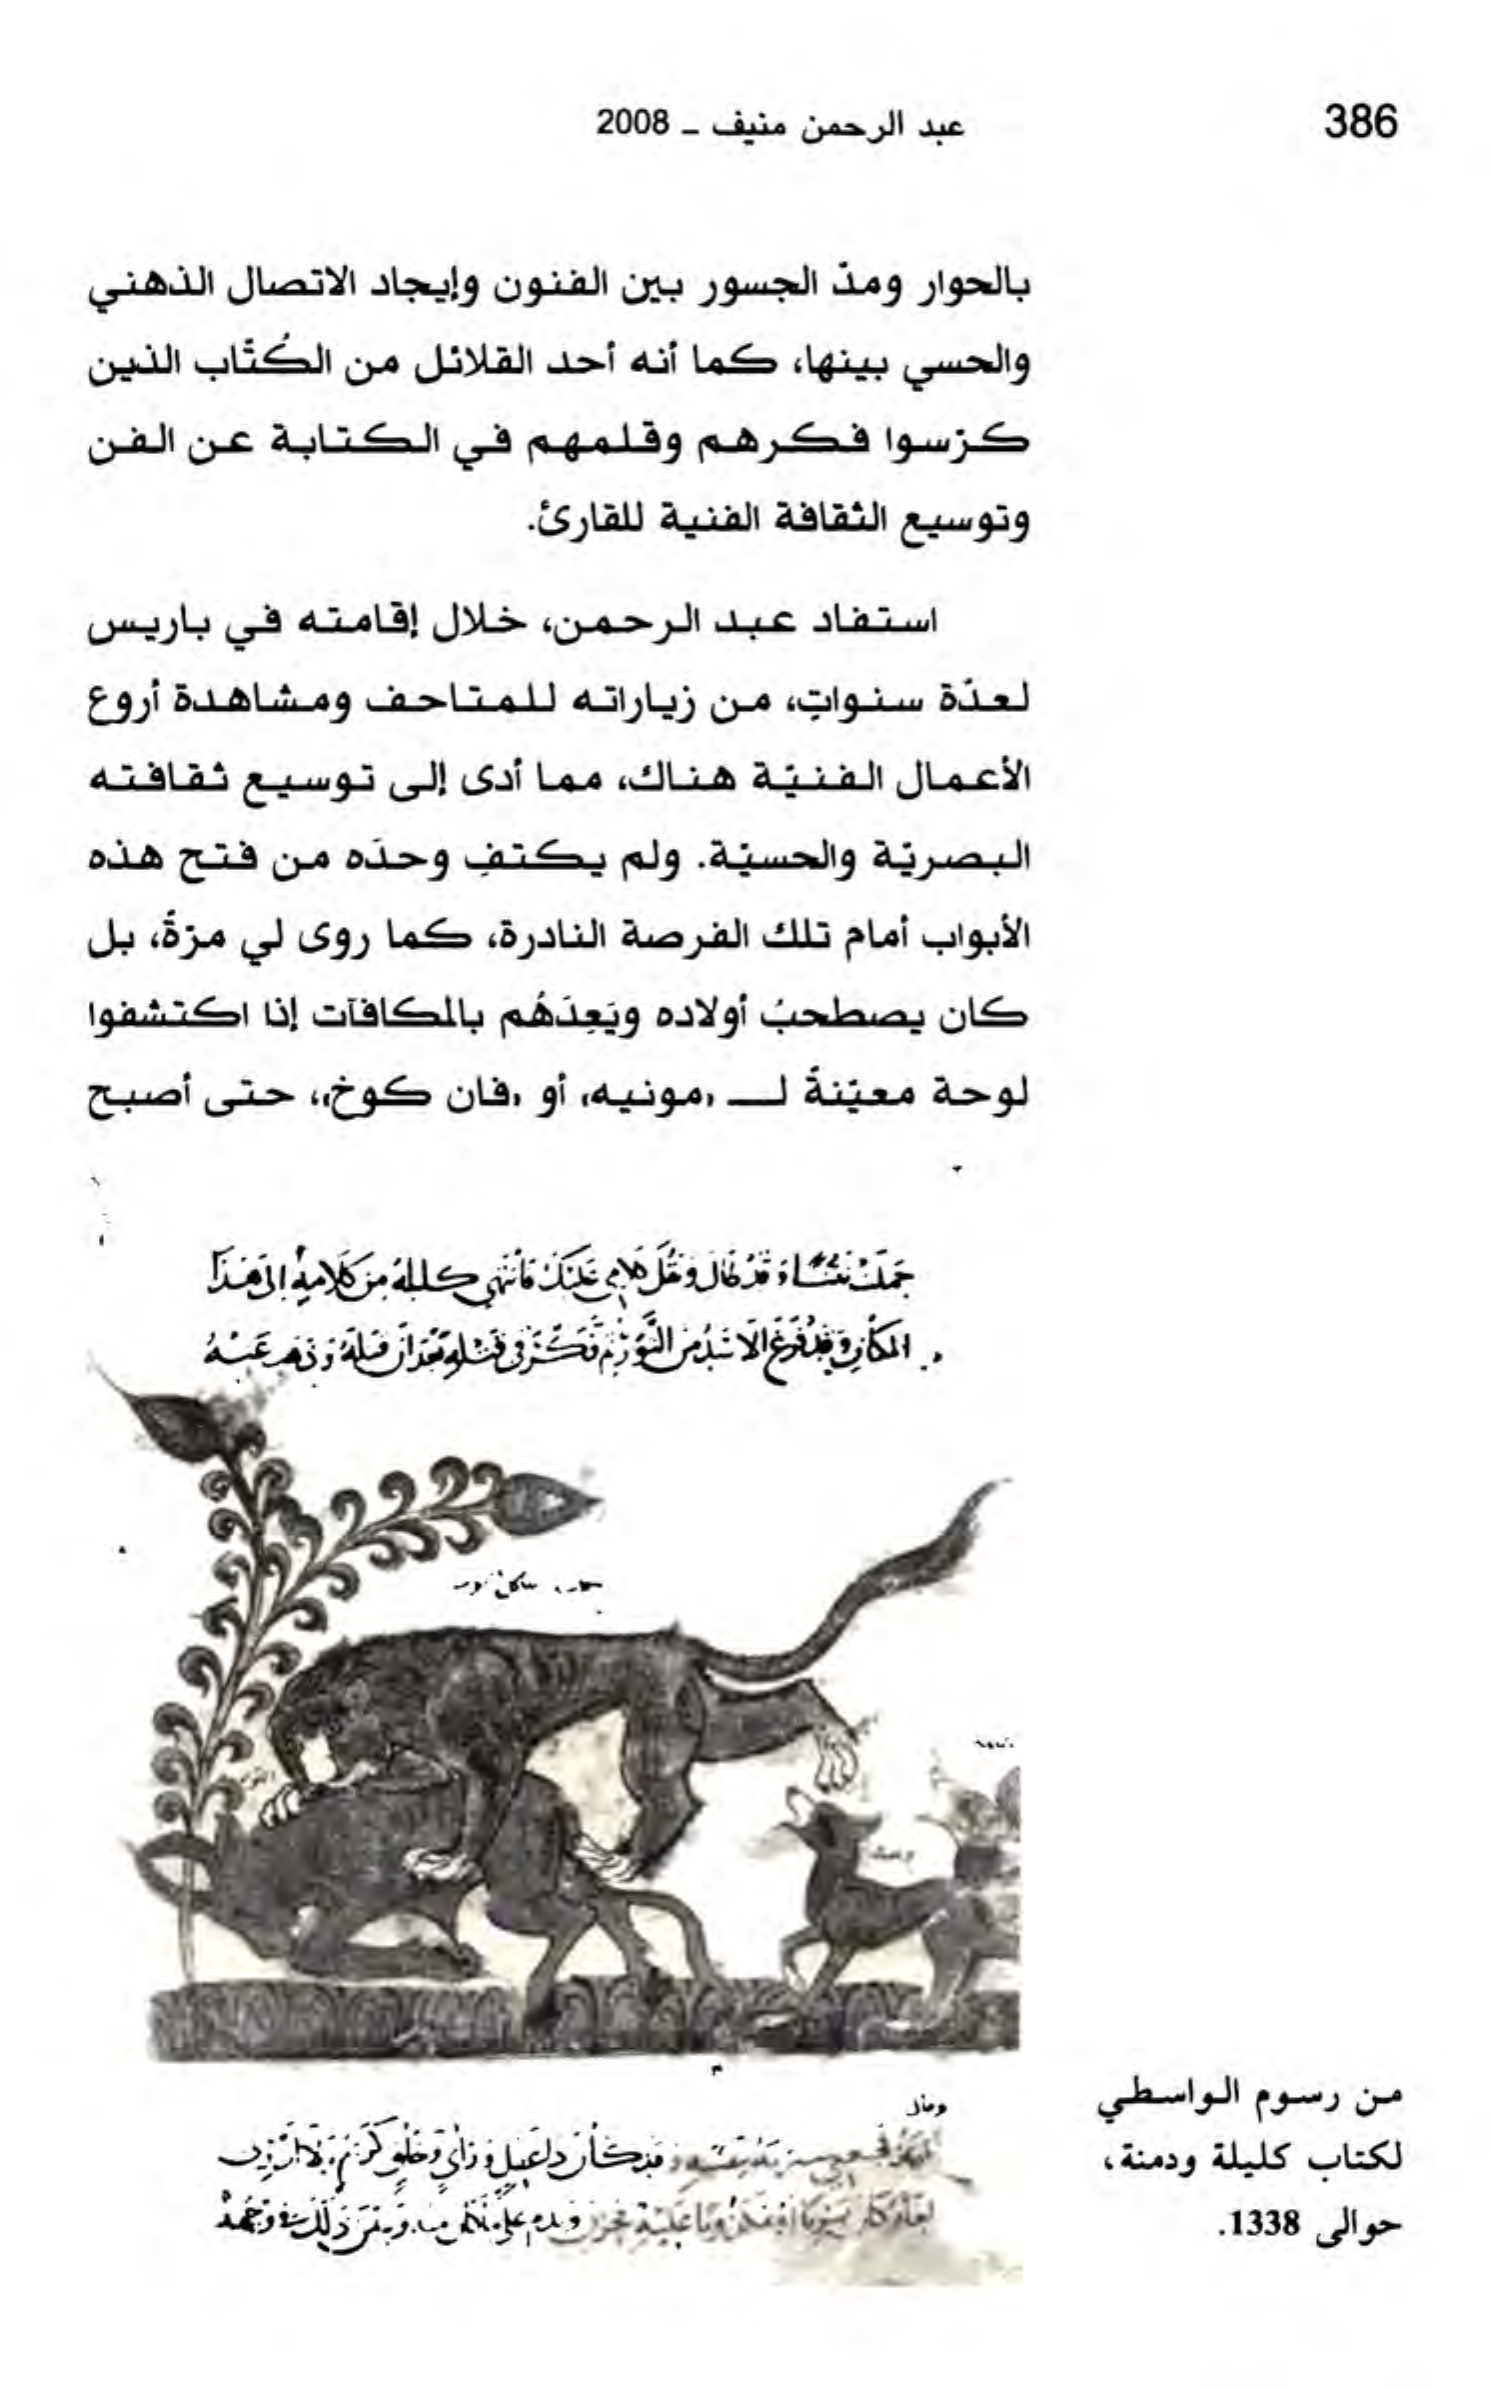 386
عبد الرحمن منيف – 2008
بالحوار ومدّ الجسور بين الفنون وإيجاد الاتصال الذهني
والحسي بينها، كما أنه أحد القلائل من الكُتّاب الذين
كرّسوا فكرهم وقلمهم في الكتابة عن الفن
وتوسيع الثقافة الفنية للقارئ.
استفاد عبد الرحمن، خلال إقامته في باريس
لعدّة سنواتٍ، من زياراته للمتاحف ومشاهدة أروع
الأعمال الفنيّة هناك، مما أدى إلى توسيع ثقافته
البصريّة والحسيّة. ولم يكتفِ وحدَه من فتح هذه
الأبواب أمام تلك الفرصة النادرة، كما روى لي مرّةً، بل
كان يصطحبُ أولاده ويَعِدَهُم بالمكافآت إذا اكتشفوا
لوحة معيّنةً لـــ «مونيه» أو «فان كوخ»، حتى أصبح
قد قال وثقل كلامي عليك فانتهى كليلة من كلامه الى هذا
المكان وقد فرغ الاسد من الثور ثم فكر في قتله بعد ان قتله وذهب عنه
وقال
من رسوم الواسطي
لكتاب كليلة ودمنة،
حوالى 1338.